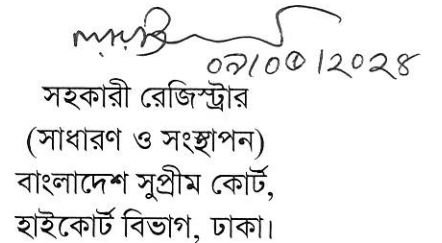 সহকারী রেজিস্ট্রার
(সাধারণ ও সংস্থাপন)
বাংলাদেশ সুপ্রীম কোর্ট,
হাইকোর্ট বিভাগ, ঢাকা।